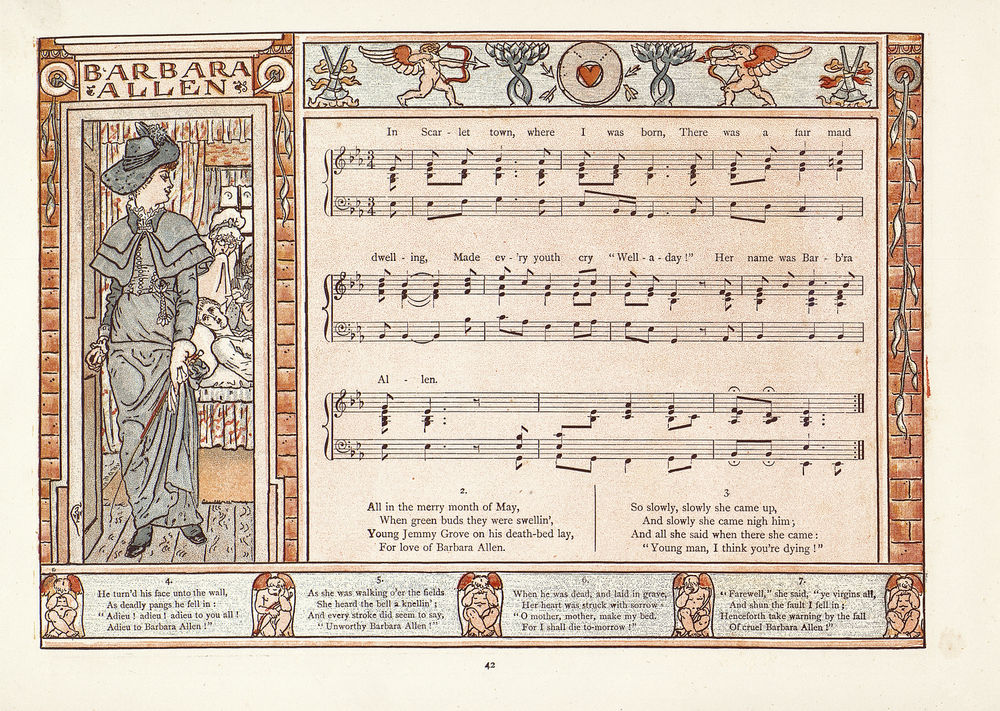 BARBARA
ALLEN
In Scar - let town, where I was born, There was a fair maid
dwell - ing, Made ev - 'ry youth cry "Well - a - day!" Her name was Bar - b'ra
Al - len.
2.
All in the merry month of May,
When green buds they were swellin',
Young Jemmy Grove on his death-bed lay,
For love of Barbara Allen.
3
So slowly, slowly she came up,
And slowly she came nigh him;
And all she said when there she came:
"Young man, I think you're dying!"
4.
He turn'd his face unto the wall,
As deadly pangs he fell in:
"Adieu! adieu! adieu to you all!
Adieu to Barbara Allen!"
5.
As she was walking o'er the fields
She heard the bell a knellin';
And every stroke did seem to say,
"Unworthy Barbara Allen!"
6.
When he was dead, and laid in grave,
Her heart was struck with sorrow
"O mother, mother, make my bed,
For I shall die to-morrow!"
7.
"Farewell," she said, "ye virgins all,
And shun the fault I fell in;
Henceforth take warning by the fall
Of cruel Barbara Allen!"
42